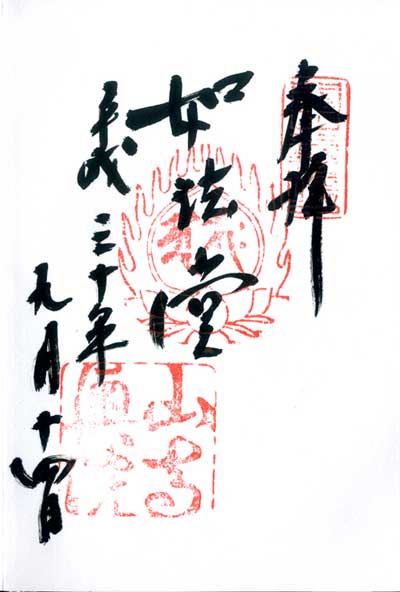 奉拝
如法堂
平成三十年
九月十四日
山寺